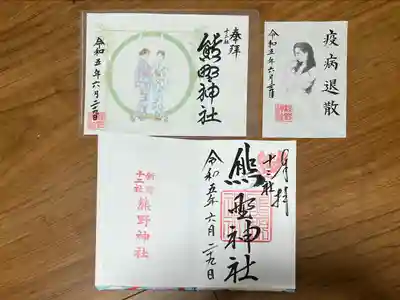 奉拝
十二社
熊野神社
令和五年六月二十九日
疫病退散
令和五年六月二十九日
奉拝
十二社
熊野神社
令和五年六月二十九日
新宿
十二社
熊野神社